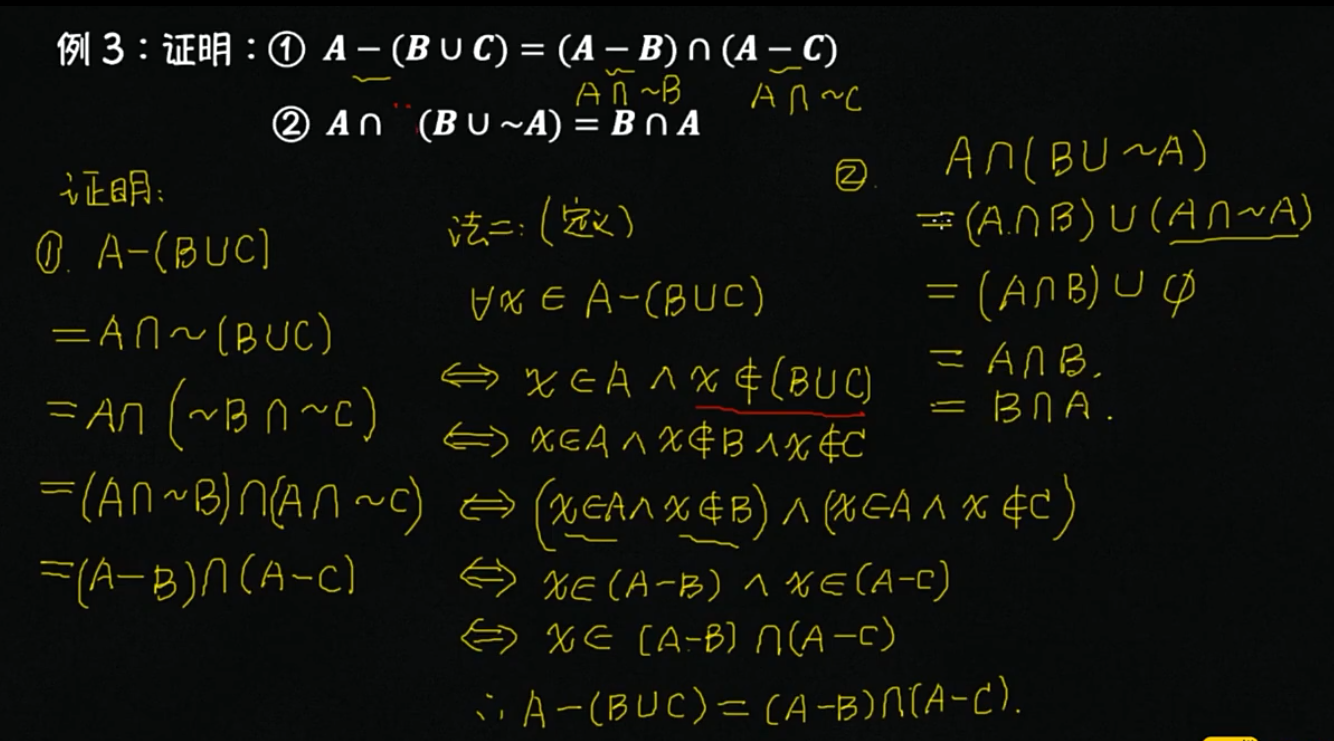 例 3：证明：① A − (B ∪ C) = (A − B) ∩ (A − C)
A ∩ ~B A ∩ ~C
② A ∩ (B ∪ ~A) = B ∩ A
证明:
①. A-(B∪C)
=A∩~(B∪C)
=A∩(~B∩~C)
=(A∩~B)∩(A∩~C)
=(A-B)∩(A-C)
法二:(定义)
∀x∈A-(B∪C)
⇔ x∈A∧x∉(B∪C)
⇔ x∈A∧x∉B∧x∉C
⇔ (x∈A∧x∉B)∧(x∈A∧x∉C)
⇔ x∈(A-B)∧x∈(A-C)
⇔ x∈(A-B)∩(A-C)
∴A-(B∪C)=(A-B)∩(A-C).
②. A∩(B∪~A)
=(A∩B)∪(A∩~A)
=(A∩B)∪φ
=A∩B.
=B∩A.